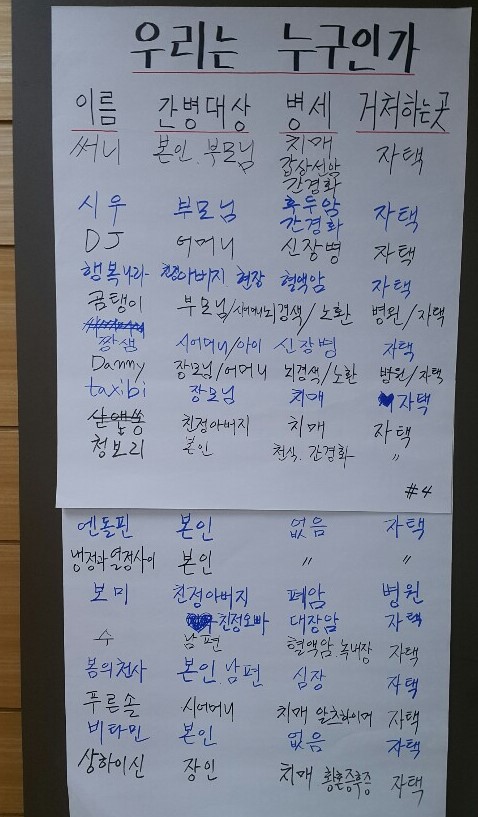 우리는 누구인가
이름 간병대상 병세 거처하는곳
써니 본인.부모님 치매 자택
갑상선암
간경화
시우 부모님 후두암 자택
간경화
DJ 어머니 신장병 자택
행복나라 친정아버지 현장 혈액암 자택
곰탱이 부모님/시어머니 뇌경색/노환 병원/자택
짱샘 시어머니/아이 신장병 자택
Danny 장모님/어머니 뇌경색/노환 병원/자택
taxibi 장모님 치매 자택
친정아버지 치매 자택
청보리 본인 천식.간경화 〃
#4
엔돌핀 본인 없음 자택
냉정과 열정사이 본인 〃 〃
보미 친정아버지 폐암 병원
친정오빠 대장암 자택
수 남편 혈액암.녹내장 자택
봄의천사 본인.남편 심장 자택
푸른솔 시어머니 치매 알츠하이머 자택
비타민 본인 없음 자택
상하이신 장인 치매 황혼증후증 자택